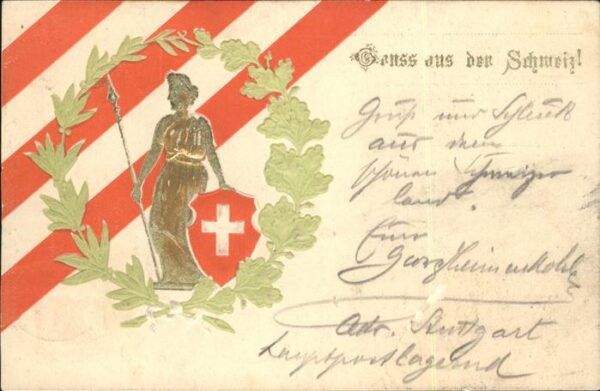 Gruss aus der Schweiz!
Gruß und
aus dem
schönen Schweizer
land.
Euer
Adr. Stuttgart
hauptpostlagernd